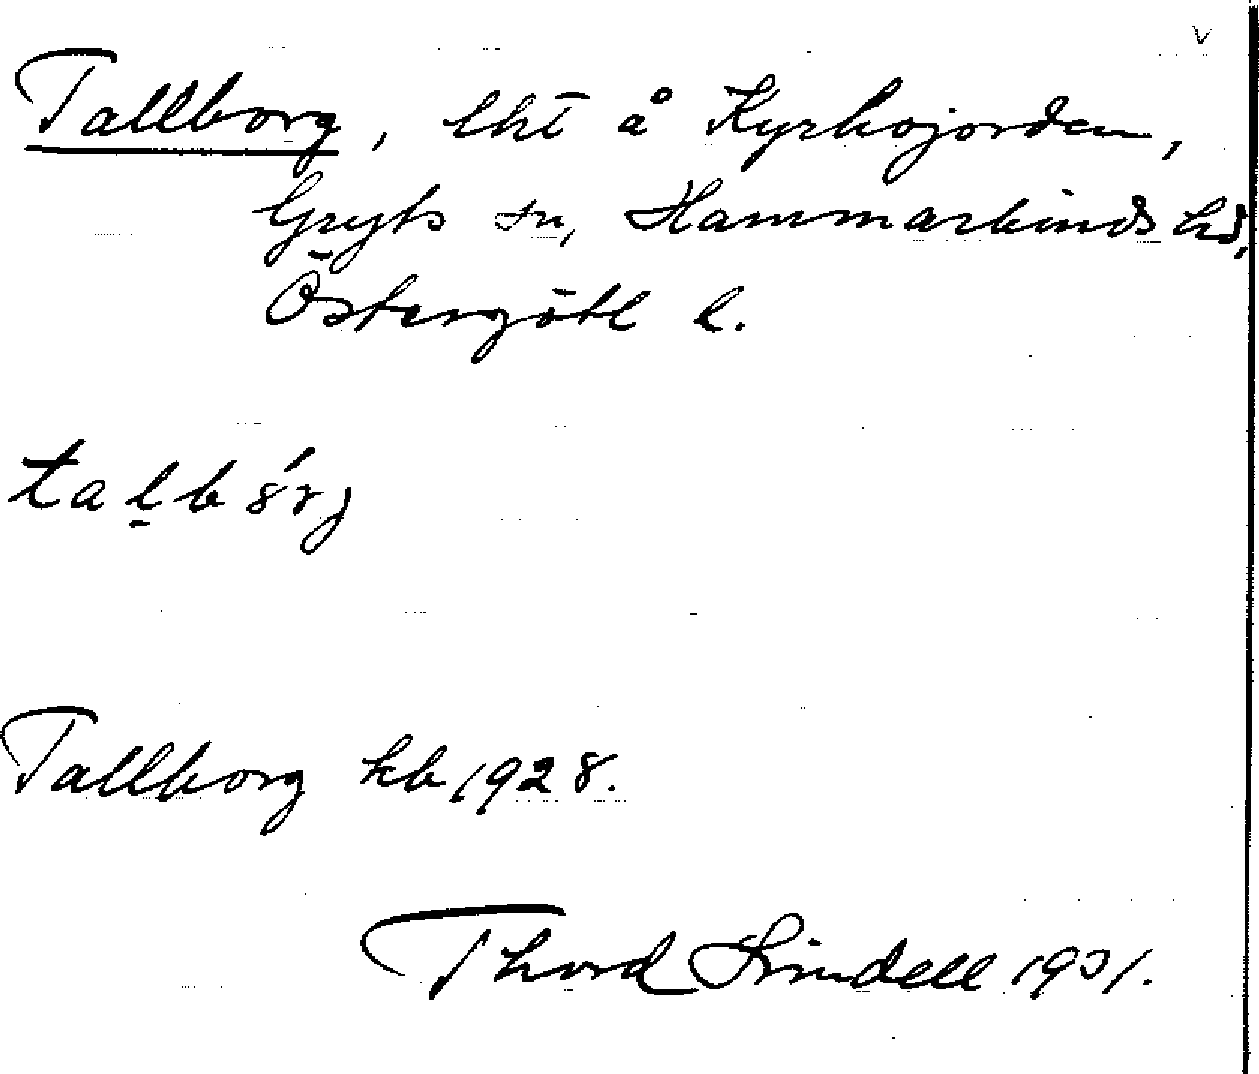 v
Tallborg, lht å Kyrkojorden,
Gryts sn, Hammarkinds hd,
Östergötl l.
talbórj
Tallborg kb 1928.
Thord Lindell 1931.